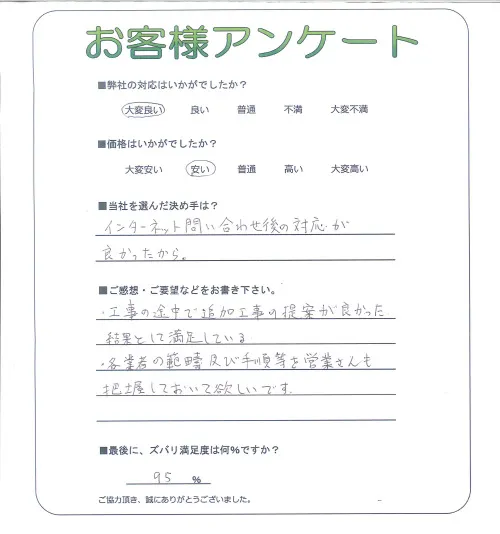 お客様アンケート
■弊社の対応はいかがでしたか？
大変良い 良い 普通 不満 大変不満
■価格はいかがでしたか？
大変安い 安い 普通 高い 大変高い
■当社を選んだ決め手は？
インターネット問い合わせ後の対応が
良かったから。
■ご感想・ご要望などをお書き下さい。
・工事の途中で追加工事の提案が良かった
結果として満足している
・各業者の範疇及び手順等を営業さんも
把握しておいて欲しいです。
■最後に、ズバリ満足度は何％ですか？
95 ％
ご協力頂き、誠にありがとうございました。